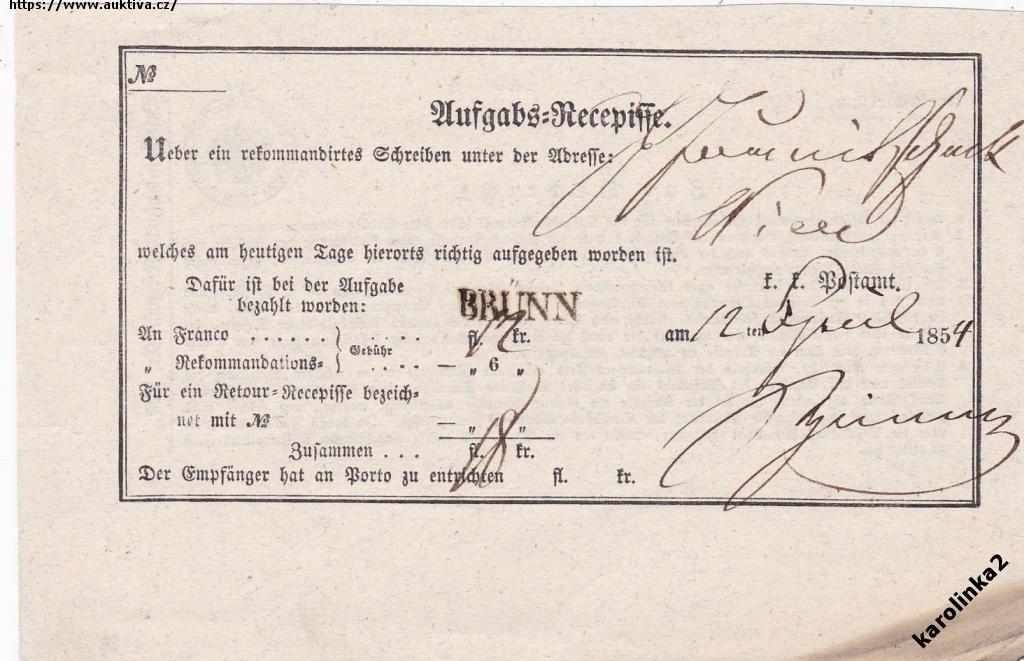 https://www.auktiva.cz/
№
Aufgabs=Recepisse.
Ueber ein rekommandirtes Schreiben unter der Adresse:
Wien
welches am heutigen Tage hierorts richtig aufgegeben worden ist.
Dafür ist bei der Aufgabe
bezahlt worden:
k. k. Postamt.
BRÜNN
An Franco . . . . . . . . . . fl. 12 kr.
am 12 ten April 1854
„ Rekommandations= Gebühr . . . . — „ 6 „
Für ein Retour=Recepisse bezeich=
net mit № — „ „
Zusammen . . . fl. 18 kr.
Der Empfänger hat an Porto zu entrichten fl. kr.
karolinka2